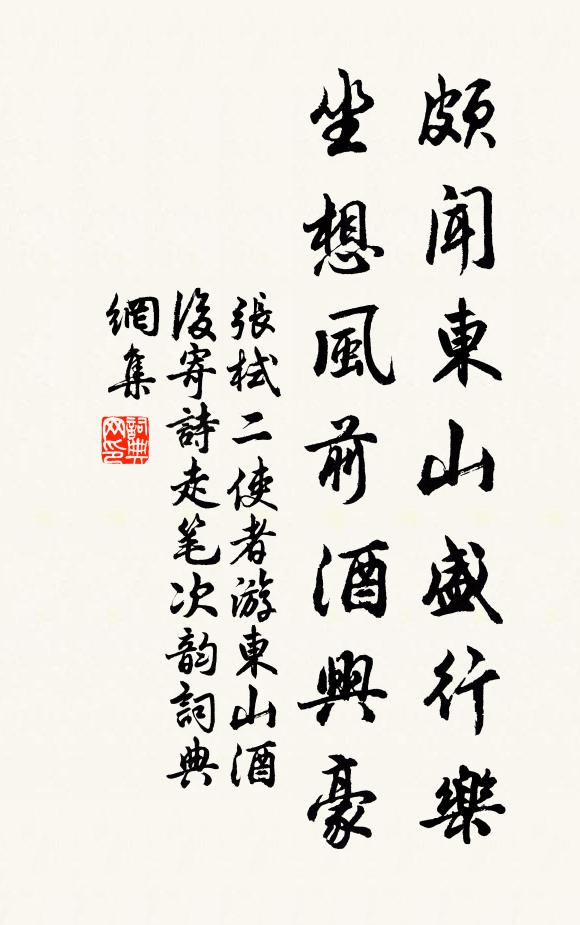 頗聞東山盛行樂
坐想風前酒興豪
張栻二使者游東山酒
後寄詩走笔次韵詞典
網集
詞典
网印